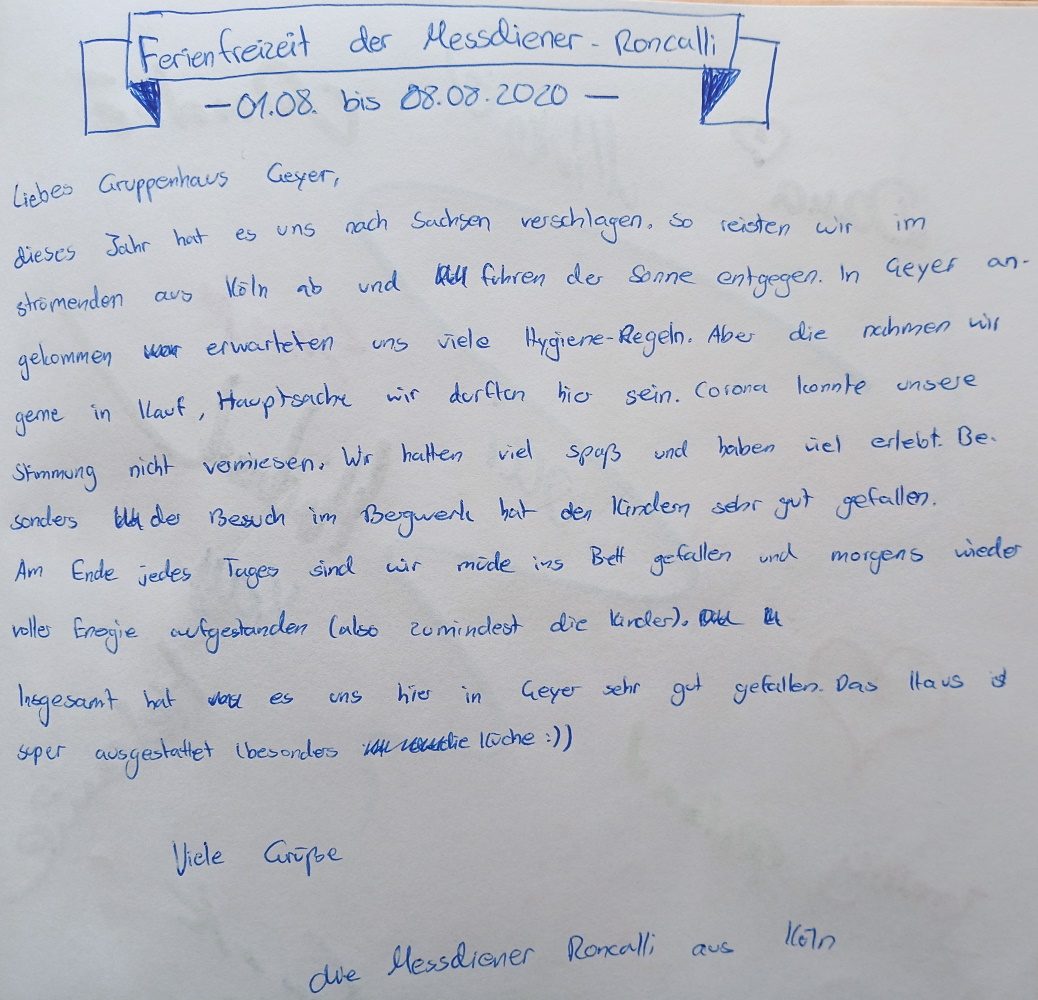 Ferienfreizeit der Messdiener - Roncalli
- 01.08. bis 08.08.2020 -
Liebes Gruppenhaus Geyer,
dieses Jahr hat es uns nach Sachsen verschlagen. So reisten wir im
strömenden aus Köln ab und fuhren der Sonne entgegen. In Geyer an-
gekommen erwarteten uns viele Hygiene-Regeln. Aber die nahmen wir
gerne in Kauf, Hauptsache wir durften hier sein. Corona konnte unsere
Stimmung nicht vermiesen. Wir hatten viel Spaß und haben viel erlebt. Be-
sonders der Besuch im Bergwerk hat den Kindern sehr gut gefallen.
Am Ende jedes Tages sind wir müde ins Bett gefallen und morgens wieder
voller Energie aufgestanden (also zumindest die Kinder).
Insgesamt hat es uns hier in Geyer sehr gut gefallen. Das Haus ist
super ausgestattet (besonders die Küche :))
Viele Grüße
die Messdiener Roncalli aus Köln